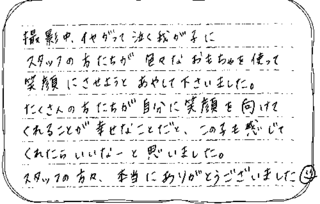 撮影中、イヤがって泣く我が子に
スタッフの方たちが 色々な おもちゃを使って
笑顔にさせようと あやして下さいました。
たくさんの方たちが自分に笑顔を向けて
くれることが幸せなことだと、この子も感じて
くれたらいいなーと思いました。
スタッフの方々、本当にありがとうございました